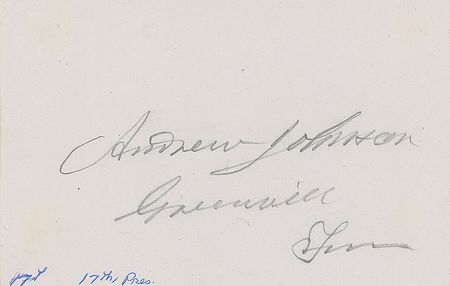 Andrew Johnson
Greenvill
Ten
17th Pres.